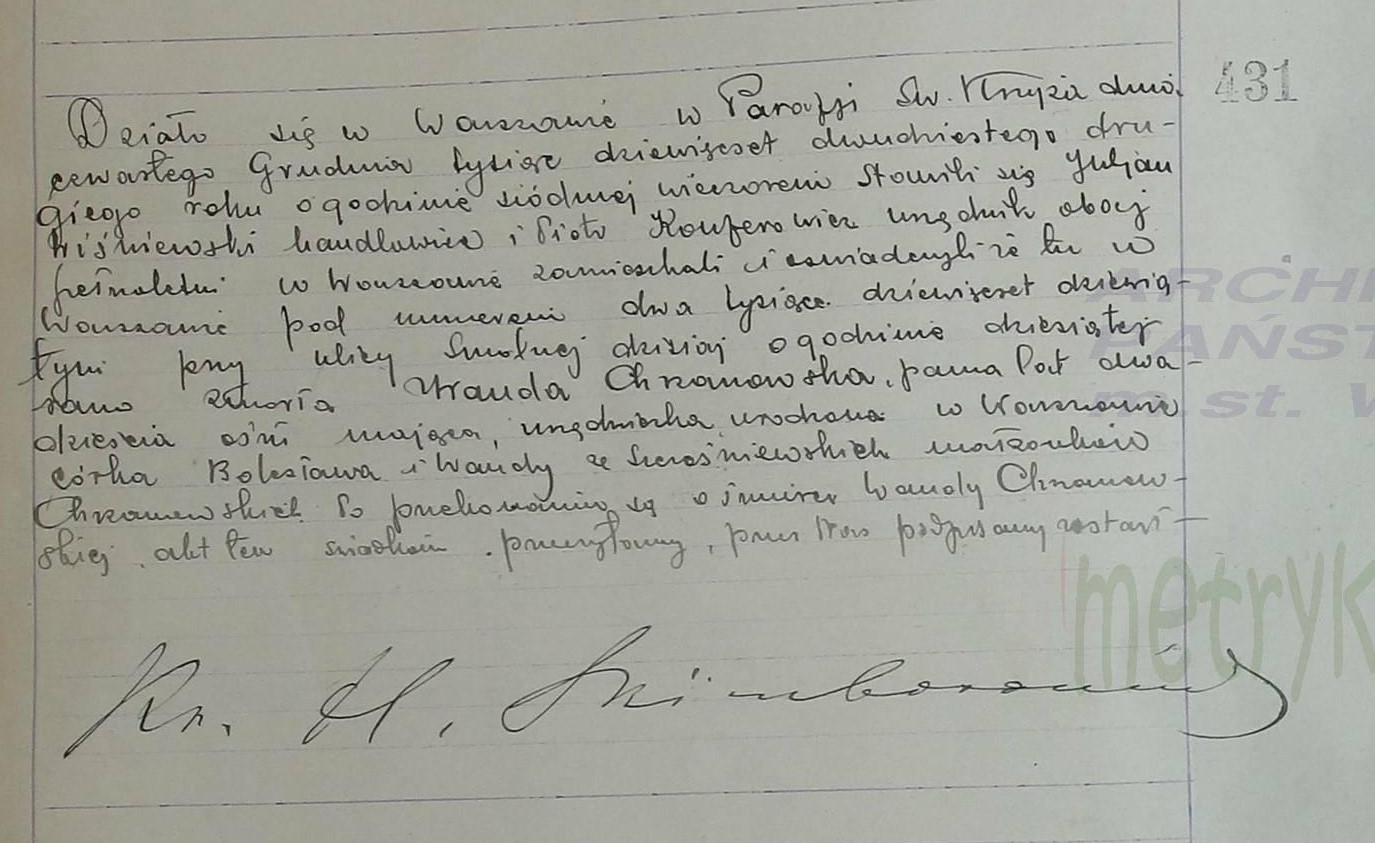 431
Działo się w Warszawie w Parafji Św. Krzyża dnia
czwartego Grudnia tysiąc dziewięćset dwudziestego dru-
giego roku o godzinie siódmej wieczorem stawili się Juljan
Wiśniewski handlowiec i Piotr urzędnik obaj
pełnoletni w Warszawie zamieszkali i oświadczyli że tu w
Warszawie pod numerem dwa tysiące dziewięćset dziewią-
tym przy ulicy Smolnej dzisiaj o godzinie dziesiątej
rano zmarła Wanda Chrzanowska, panna lat dwa-
dzieścia ośm mająca, urzędniczka urodzona w Warszawie
córka Bolesława i Wandy ze małżonków
Chrzanowskich Po przekonaniu się o śmierci Wandy Chrzanow-
skiej, akt ten świadkom przeczytany, przez Nas podpisany został —
Ks. H.
ARCHI
PAŃST
m. st. W
metryk